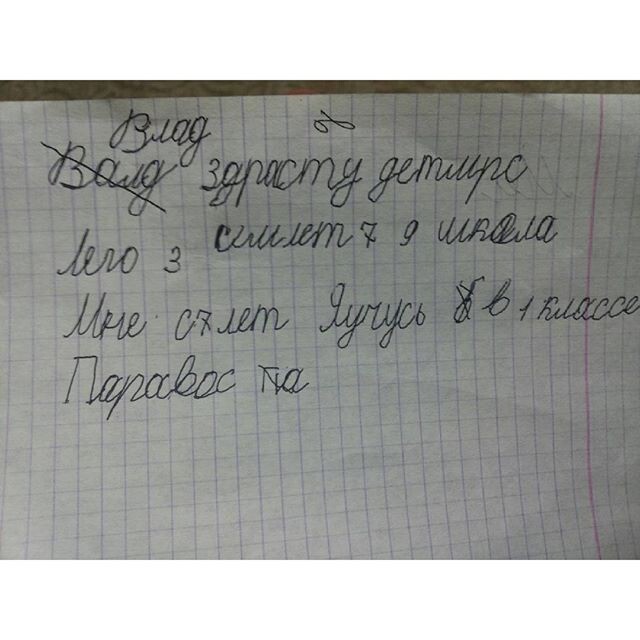 Влад д
Валд здрасту детмрс
Лего з симлет 7 я школа
Мне с7лет Яучусь в 1 классе
Паравос па